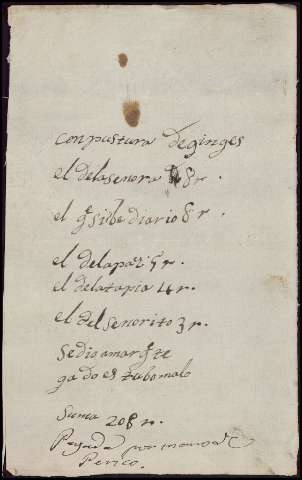 conpustura deginges
el delasenora 8 r.
el q̃ sibe diario 8 r.
el delapaz 5 r.
el delatapia 4 r.
el del senorito 3 r.
sedio amar q̃te
gado es tabomalo
Suma 208 r.
Pagada por mano de
Perico.